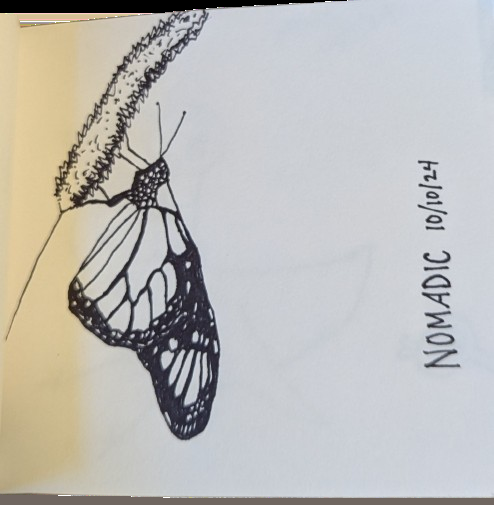 NOMADIC 10/10/24